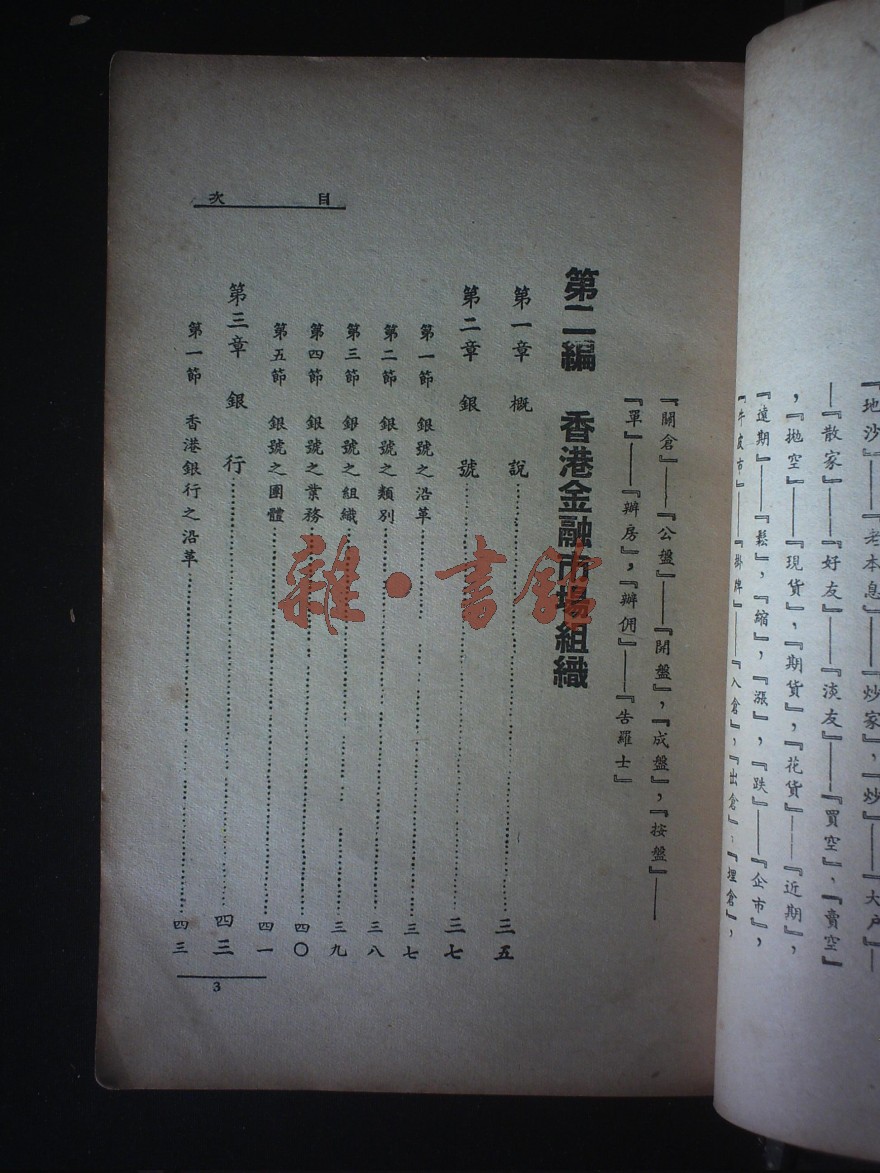 『地沙』——『老本息』——『炒家』，『炒』——『大戶』—
—『散家』——『好友』——『淡友』——『買空』，『賣空』
，『拋空』——『現貨』，『期貨』，『花貨』——『近期』，
『遠期』——『鬆』，『縮』，『漲』，『跌』——『企市』，
『牛皮市』——『掛牌』——『入倉』，『出倉』，『埋倉』，
『關倉』——『公盤』——『開盤』，『成盤』，『按盤』——
『單』——『辦房』，『辦佣』——『告羅士』
第二編 香港金融市場組織
第一章 概說……三五
第二章 銀號……三七
第一節 銀號之沿革……三七
第二節 銀號之類別……三八
第三節 銀號之組織……三九
第四節 銀號之業務……四〇
第五節 銀號之團體……四一
第三章 銀行……四三
第一節 香港銀行之沿革……四三
目次
3
雜·書館